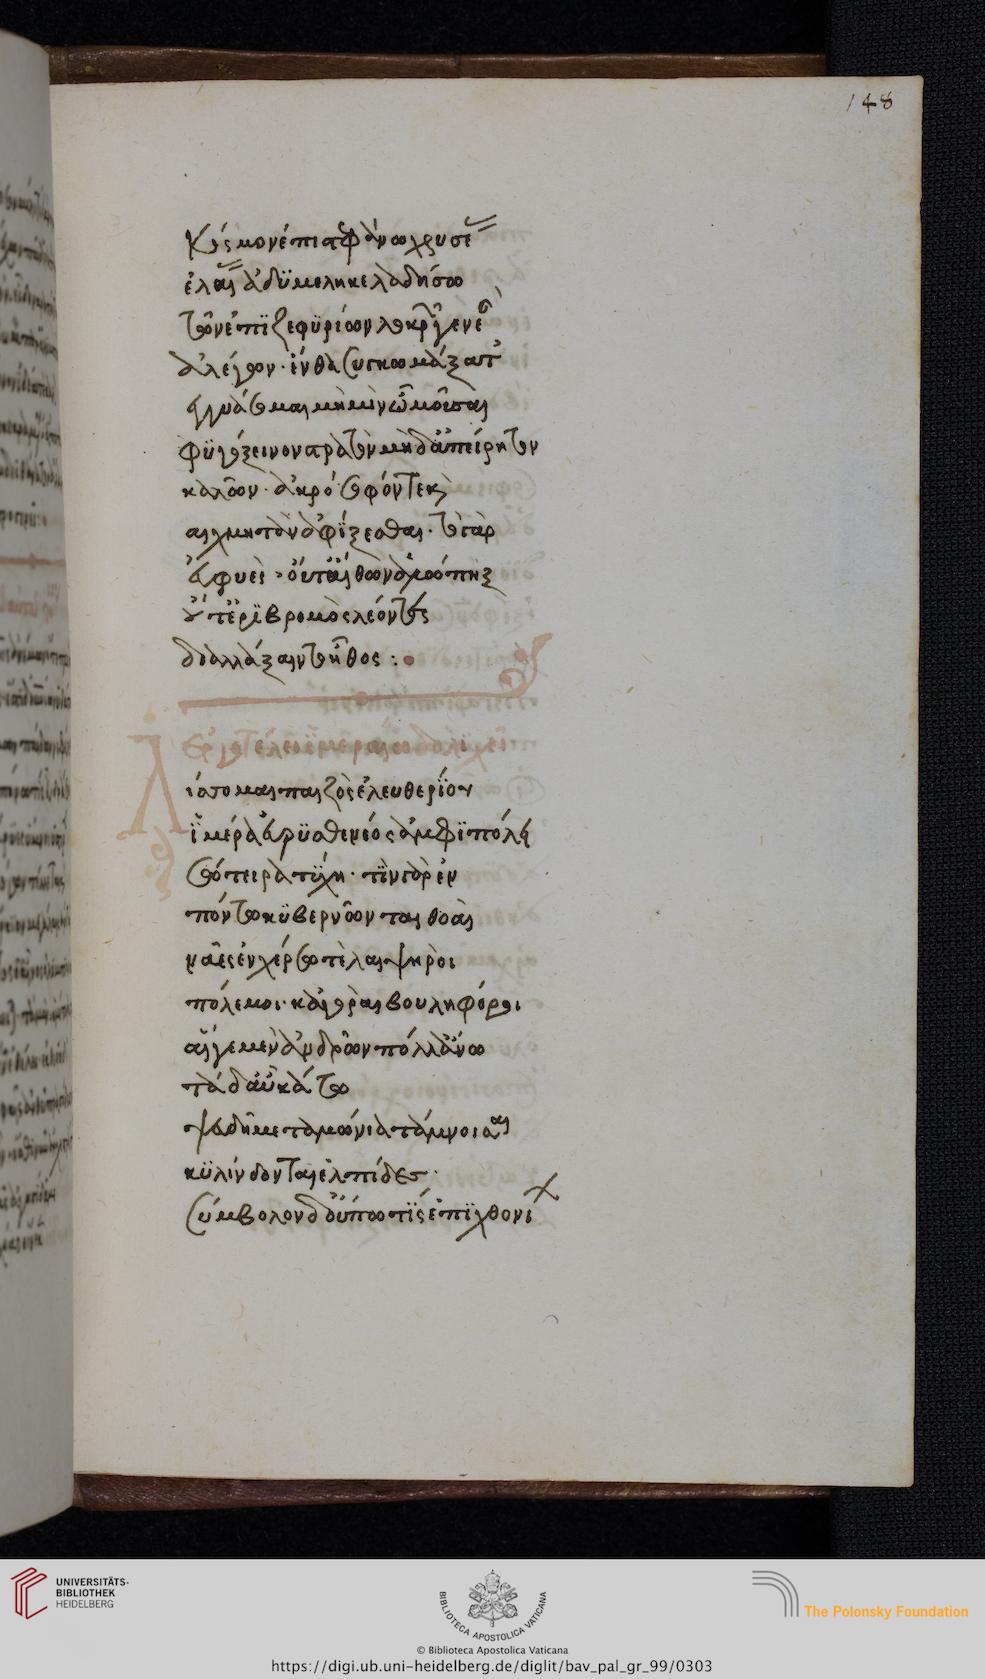 148
κόσμον ἐπι στεφάνω χρυσέ
ἐλαίας ἁδυμελῆ κελαδήσω
τῶν ἐπιζεφυρίων λοκρῶν γενε
ἀλέγων· ἔνθα συγκωμάξατ
ἐγγυάσομαι μή μιν ὦ μοῖσαι
φυγόξεινον στρατὸν μηδ ἀπείρητον
καλῶν· ἀκρόσοφόν τε καὶ
αἰχμητὰν ἀφίξεσθαι· τὸ γὰρ
ἐμφυὲς οὔτ αἴθων ἀλώπηξ
οὔτ ἐρίβρομος λέοντες
διαλλάξαιντο ἦθος :
ἐργοτέλει ἱμεραίω δολιχεῖ
Λίσσομαι παῖ ζηνὸς ἐλευθερίου
ἱμέραν εὐρυσθενέος ἀμφιπόλει
σώτειρα τύχη· τὶν γὰρ ἐν
πόντω κυβερνῶνται θοαὶ
νᾶες ἐν χέρσω τὲ λαιψηροὶ
πόλεμοι· κἀγοραὶ βουληφόροι
αἵ γε μὲν ἀνδρῶν πόλλ ἄνω
τὰ δ αὖ κάτω
ψεύδη μεταμώνια τάμνοισαι
κυλίνδονται ἐλπίδες·
σύμβολον δ οὔπω τὶς ἐπιχθονί
UNIVERSITÄTS-
BIBLIOTHEK
HEIDELBERG
BIBLIOTECA APOSTOLICA VATICANA
The Polonsky Foundation
© Biblioteca Apostolica Vaticana
https://digi.ub.uni-heidelberg.de/diglit/bav_pal_gr_99/0303